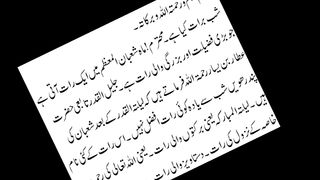 و رحمۃ اللہ و برکاتہ۔
شب برات کیا ہے۔ محترم ماہ شعبان المعظم میں ایک رات آتی ہے
جو بڑی فضیلت اور بزرگی والی رات ہے۔ جلیل القدر تابعی حضرت
عطار بن یسار رحمۃ اللہ فرماتے ہیں کہ لیلۃ القدر کے بعد شعبان کی
پندرھویں شب سے زیادہ کوئی رات افضل نہیں۔ اس رات کے کئی نام
ہیں۔ لیلۃ المبارکہ یعنی برکتوں والی رات۔ دستاویز والی رات
خاصہ کے نزول کی رات۔ یعنی اللہ تعالیٰ کی رحمت